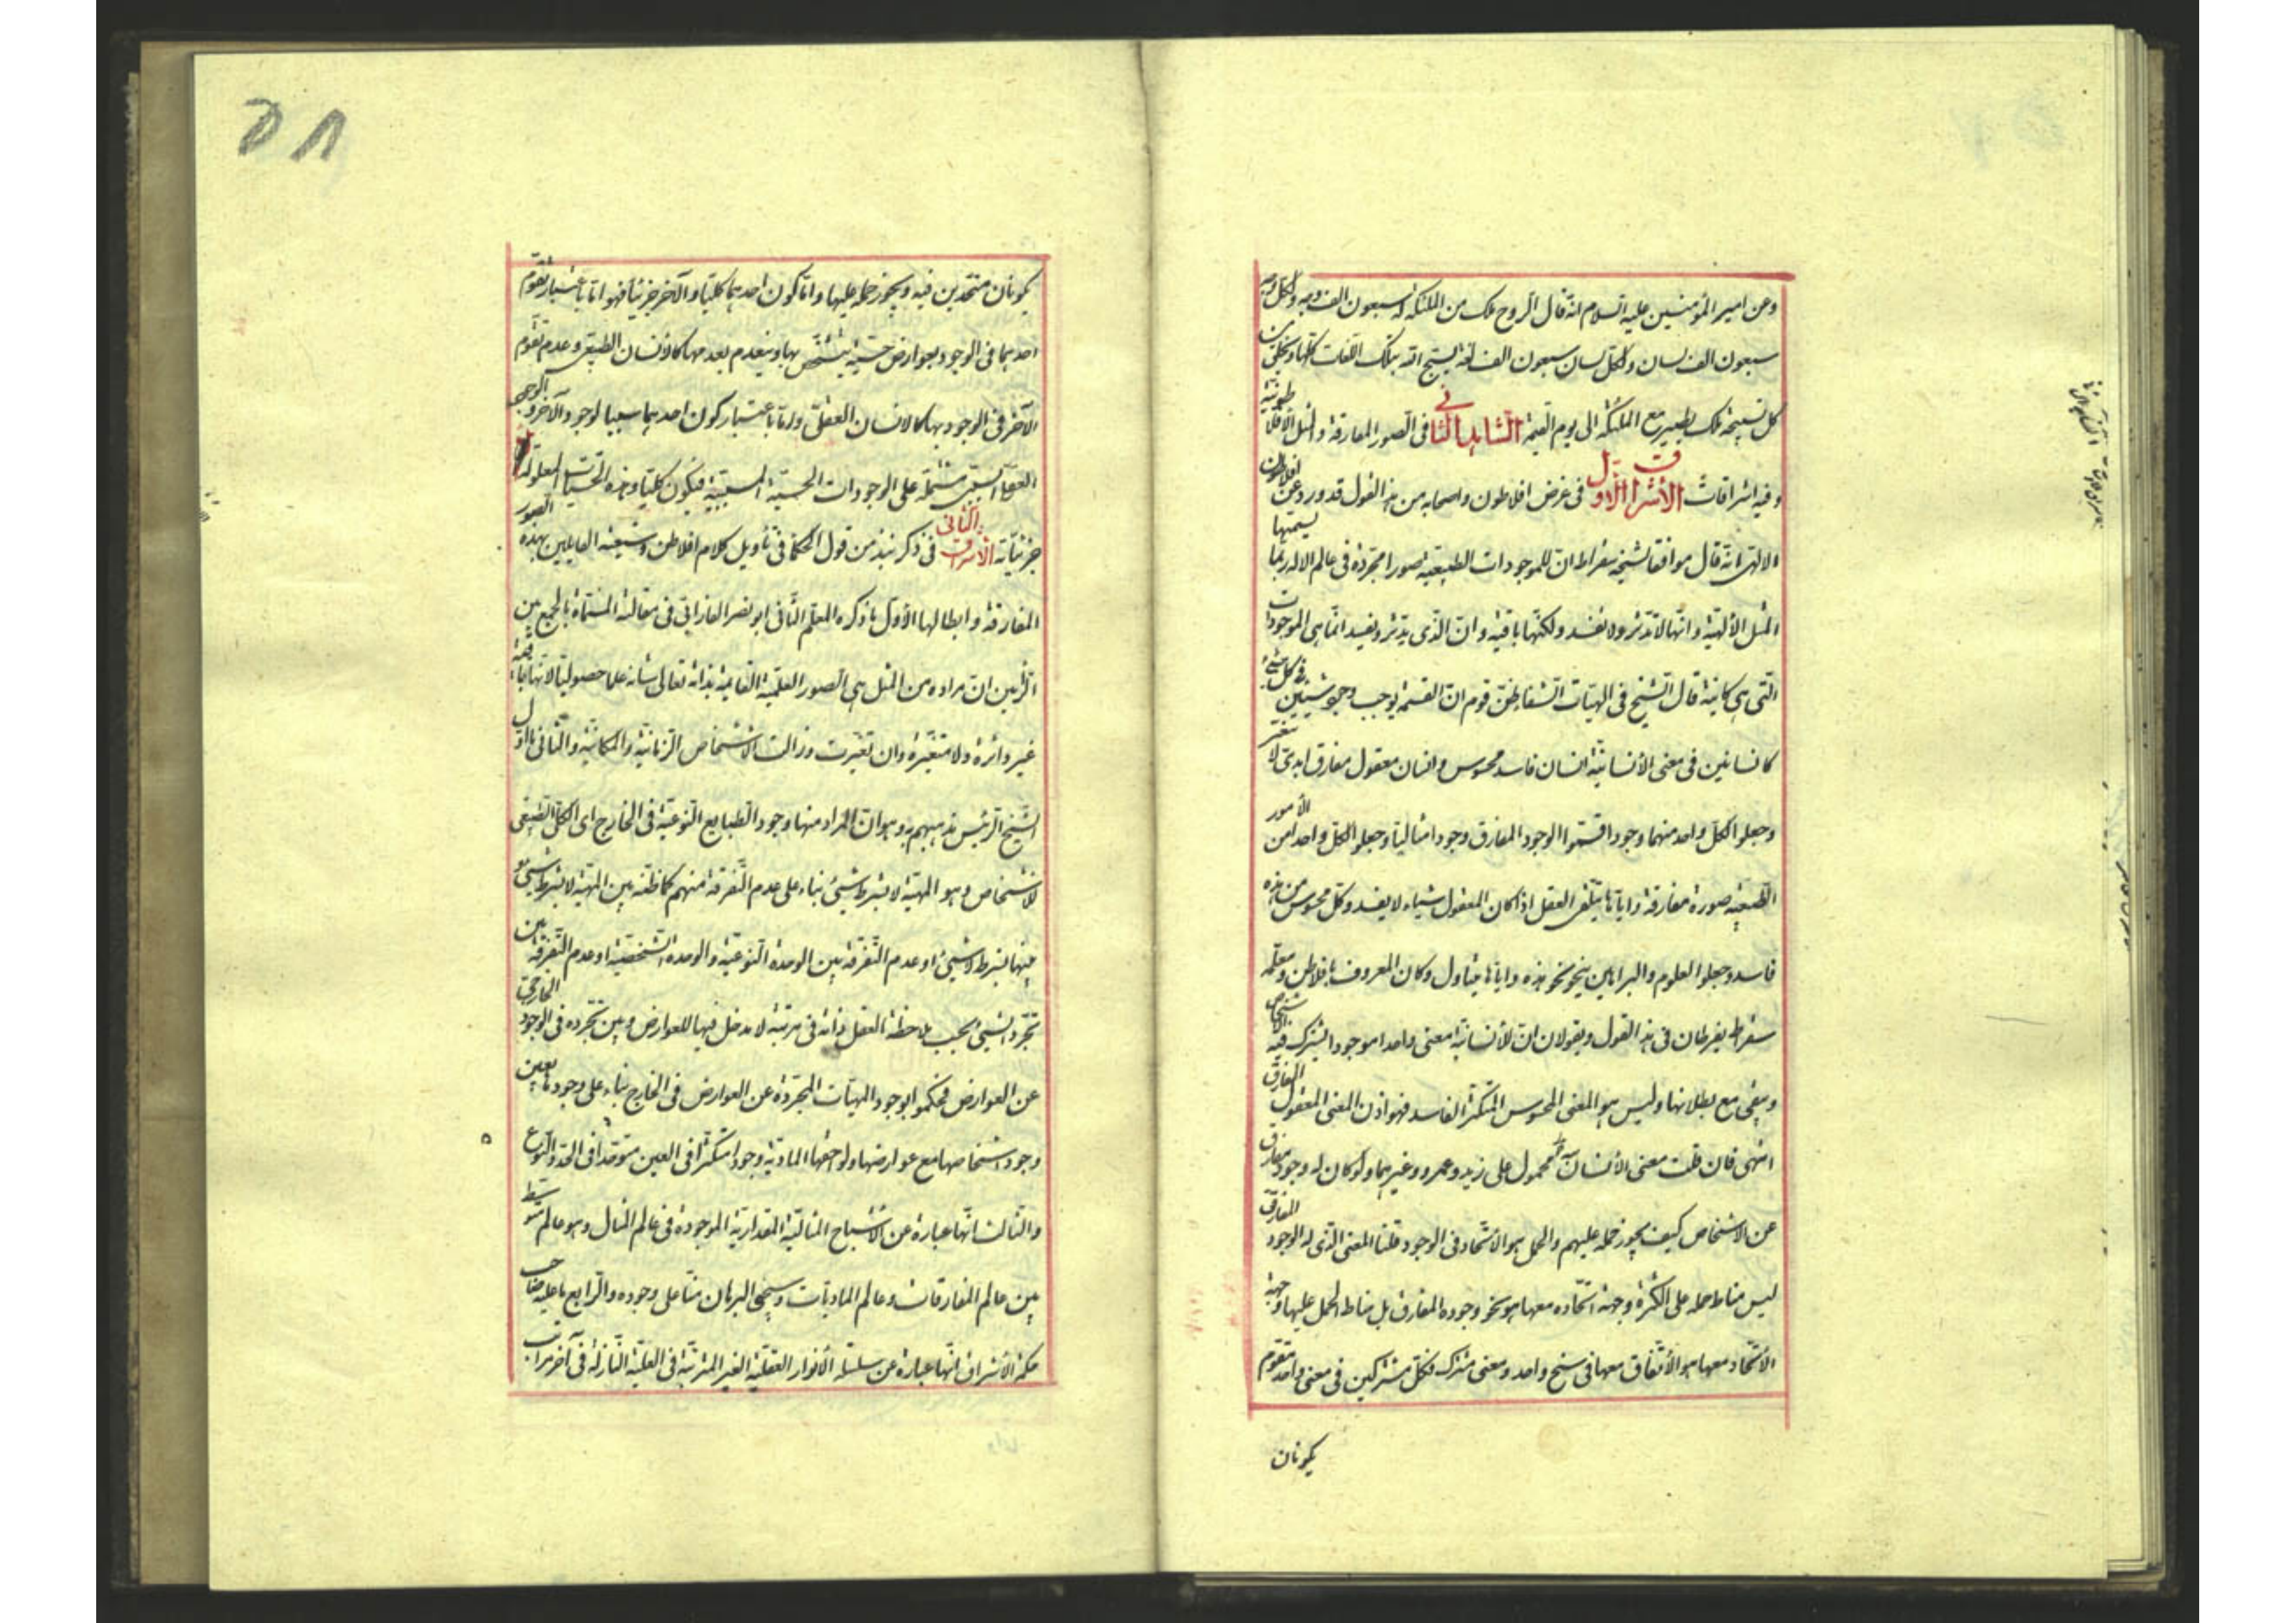 وعن امير المؤمنين عليه السلام انه قال الروح ملك من الملئكة له سبعون الف وجه ولكل وجه
سبعون الف لسان ولكل لسان سبعون الف لغة يسبح الله بتلك اللغات كلها ويخلق من
كل تسبيحة ملك يطير مع الملئكة الى يوم القيمة الشاهد الثاني في الصور المفارقة والمثل الافلاطونية
وفيه اشراقات الأشراق الاول في غرض افلاطون واصحابه من هذا القول قد ورد عن افلاطون
الالهى انه قال موافقا لشيخه سقراط ان للموجودات الطبيعية صورا مجردة في عالم الاله ربما يسميها
المثل الألهية وانها لا تدثر ولا تفسد ولكنها باقية وان الذى يدثر ويفسد انما هى الموجودات
التى هى كاينة قال الشيخ فى الهيات الشفا ظن قوم ان القسمة يوجب وجود شيئين في كل شئ
كانسانين فى معنى الأنسانية انسان فاسد محسوس وانسان معقول مفارق ابدى لا يتغير
وجعلوا لكل واحد منهما وجودا فسموا الوجود المفارق وجودا مثاليا وجعلوا لكل واحد من الأمور
الطبيعية صورة مفارقة واياها يتلقى العقل اذا كان المعقول شياء لا يفسد وكل محسوس من هذه
فاسد وجعلوا العلوم والبراهين ينحو نحو هذه واياها يتناول وكان المعروف بافلاطن ومعلمه
سقراط يفرطان فى هذا القول ويقولان ان للأنسانية معنى واحدا موجودا يشترك فيه الاشخاص
ويبقى مع بطلانها وليس هو المعنى المحسوس المتكثر الفاسد فهو اذن المعنى المعقول المفارق
انتهى فان قلت معنى الأنسان محمول على زيد وعمرو وغيرهما ولو كان له وجود مفارق
عن الاشخاص كيف يجوز حمله عليهم والحمل هو الأتحاد فى الوجود قلنا المعنى الذى له الوجود المفارق
ليس مناط حمله على الكثرة وجهة اتحاده معها هو نحو وجوده المفارق بل مناط الحمل عليها وجهة
الأتحاد معها هو الأتفاق معها فى سنخ واحد ومعنى مشترك وكل مشتركين فى معنى واحد متقوم
يكونان
٥٨
يكونان متحدين فيه ويجوز حمله عليها واما كون احدهما كليا والآخر جزئيا فهو اما باعتبار تقوم
احدهما فى الوجود بعوارض حسية يتشخص بها وينعدم بعدمها كالأنسان الطبيعى وعدم تقوم
الآخر فى الوجود بها كالانسان العقلى واما باعتبار كون احدهما سببا لوجود الآخر والوجود
العقلى مشتملة على الوجودات الحسية المسببية فيكون كليا وهذه الحسيات المعلولة
جزئياته الأشراق الثانى فى ذكر نبذ من قول الحكماء فى تأويل كلام افلاطن وشيعته القايلين بهذه الصور
المفارقة وابطالها الأول ما ذكره المعلم الثانى ابو نصر الفارابى فى مقالته المسماة بالجمع بين
الرأيين ان مراده من المثل هى الصور العلمية القايمة بذاته تعالى شانه علما حصوليا لانها باقية
غير داثرة ولا متغيرة وان تغيرت وزالت الأشخاص الزمانية والمكانية والثانى ما اول
الشيخ الرئيس مذهبهم به وهو ان المراد منها وجود الطبايع النوعية فى الخارج اى الكلى الطبيعى
للاشخاص وهو المهية لا بشرط شئ بناء على عدم التفرقة منهم كما ظنه بين المهية لا بشرط شئ
منها بشرط لا شئ او عدم التفرقة بين الوحدة النوعية والوحدة الشخصية او عدم التفرقة بين
تجرد الشئ بحسب ملاحظة العقل ذاته فى مرتبة لا مدخل فيها للعوارض وبين تجرده فى الوجود الخارجى
عن العوارض فحكموا بوجود المهيات المجردة عن العوارض فى الخارج بناء على وجودها بعين
وجود اشخاصها مع عوارضها ولواحقها المادية وجودا متكثرا فى العين متوحدا فى الحد والنوع
والثالث انها عبارة عن الأشباح المثالية المقدارية الموجودة فى عالم المثال وهو عالم متوسط
بين عالم المفارقات وعالم الماديات وسيجئ البرهان منا على وجوده والرابع ما عليه صاحب
حكمة الأشراق انها عبارة عن سلسلة الأنوار العقلية الغير المترتبة فى العلية النازلة فى آخر مراتب